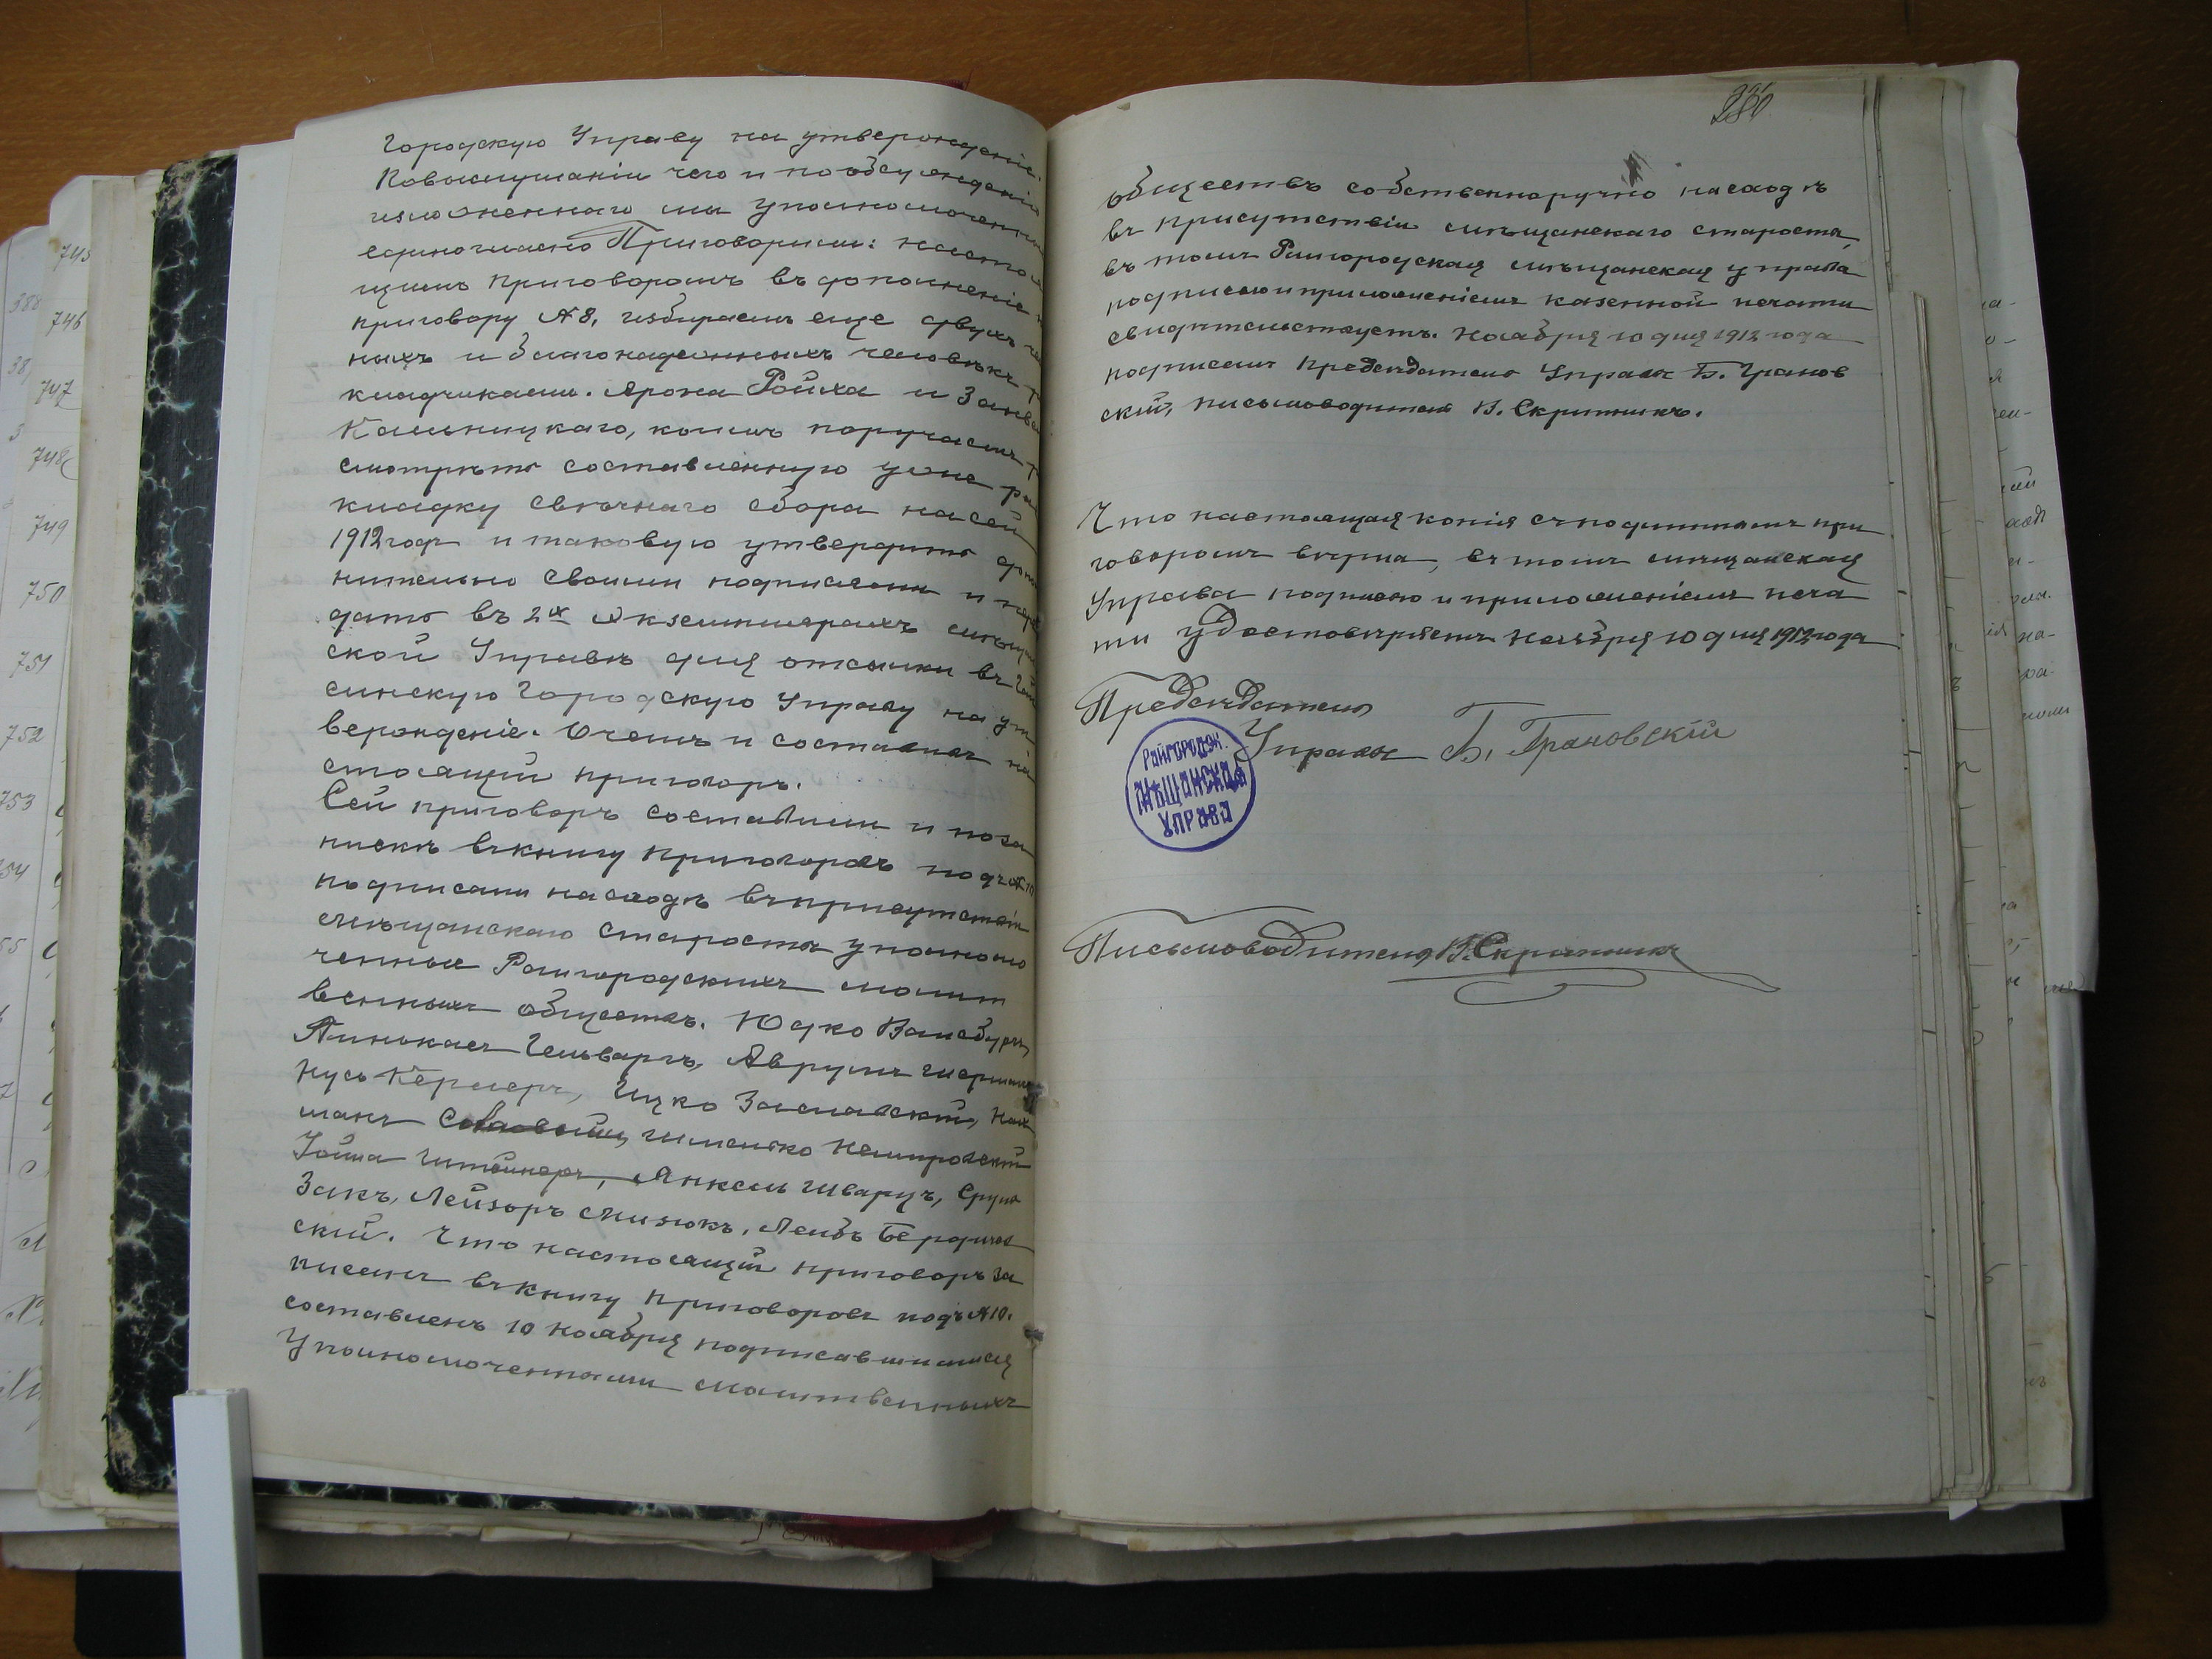 Городскую Управу на утвержденіе.
Повыслушаніи чего и по обсужденіи
изложеннаго мы уполномоченные
единогласно Приговорили: настоя
щимъ приговоромъ въ дополненіе
приговору №8, избираемъ еще двухъ
ныхъ и благонадежныхъ человѣкъ
кладчиками. Арона Ройха и
Кальницкаго, коимъ поручаемъ
смотрѣть составленную уже рас
кладку свѣчнаго сбора на сей
1912 годъ и таковую утвердить
нительно своими подписями и пере
дать въ 2хъ экземплярахъ мѣщан
ской Управѣ для отсылки въ Гай
синскую Городскую Управу на ут
вержденіе. О чемъ и составленъ на
стоящій приговоръ.
Сей приговоръ составили и поза
пискѣ въ книгу приговоровъ подъ №10
подписали на сходѣ въ присутствіи
мѣщанскаго старосты уполномо
ченные Райгородскихъ молит
венныхъ обществъ. Юдко Вайсбургъ,
Пинькасъ Гельваргъ, Аврумъ Шерманъ
Нусь Кермеръ, Ицко Заславскій, Нах
манъ Шмелько Немировскій
Іойна Штейнеръ, Янкель Шварцъ, Сруль
Закъ, Лейзоръ Мизюкъ, Лейбъ Бердичев
скій. Что настоящій приговоръ за
писанъ въ книгу приговоровъ подъ №10.
составленъ 10 Ноября подписавшимися
Уполномоченными молитвенныхъ
280
обществъ собственноручно на сходѣ
въ присутствіи мѣщанскаго старосты,
въ томъ Райгородская мѣщанская управа
подписью и приложеніемъ казенной печати
свидѣтельствуетъ. Ноября 10 дня 1912 года
подписали Предсѣдатель Управы Б. Гранов
скій, письмоводитель В. Скрипникъ.
Что настоящая копія съ подлиннымъ при
говоромъ вѣрна, въ томъ мѣщанская
Управа подписью и приложеніемъ печа
ти удостовѣряетъ Ноября 10 дня 1912 года
Предсѣдатель
Управы Б. Грановскій
Райгородск.
МѢЩАНСКАЯ
УПРАВА
Письмоводитель В. Скрипникъ
745
746
747
748
749
750
751
752
753